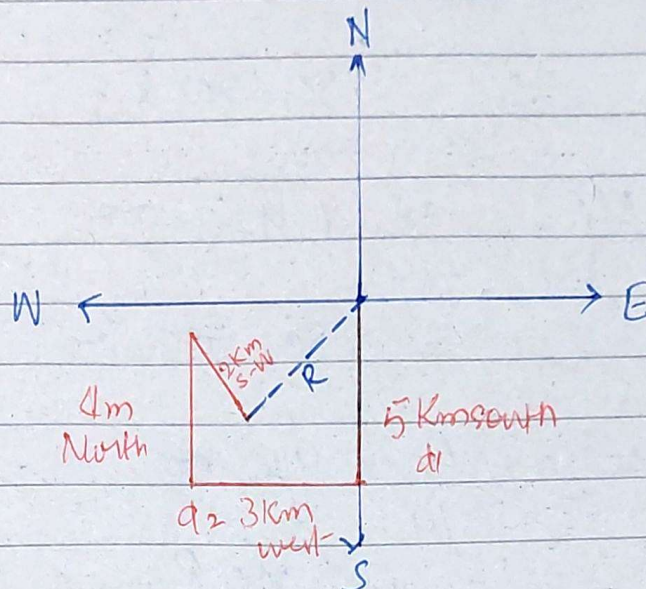 N
W
E
2Km
S-W
R
4m
North
5 Km south
d1
d2 3Km
west
S